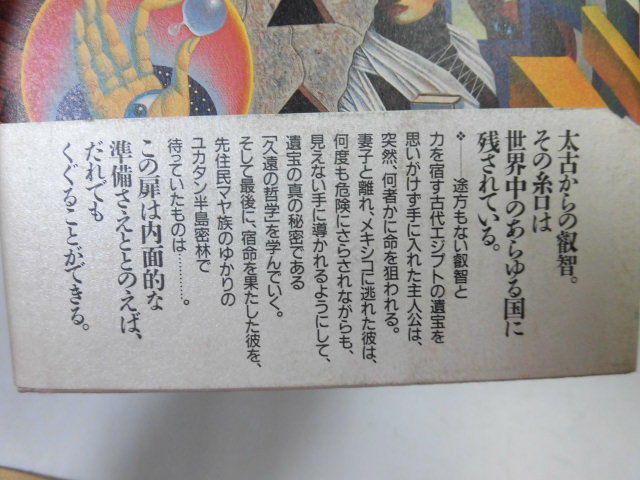 太古からの叡智。
その糸口は
世界中のあらゆる国に
残されている。
❖――途方もない叡智と
力を宿す古代エジプトの遺宝を
思いがけず手に入れた主人公は、
突然、何者かに命を狙われる。
妻子と離れ、メキシコに逃れた彼は、
何度も危険にさらされながらも、
見えない手に導かれるようにして、
遺宝の真の秘密である
「久遠の哲学」を学んでいく。
そして最後に、宿命を果たした彼を、
先住民マヤ族のゆかりの
ユカタン半島密林で
待っていたものは…………。
この扉は内面的な
準備さえととのえば、
だれでも
くぐることができる。